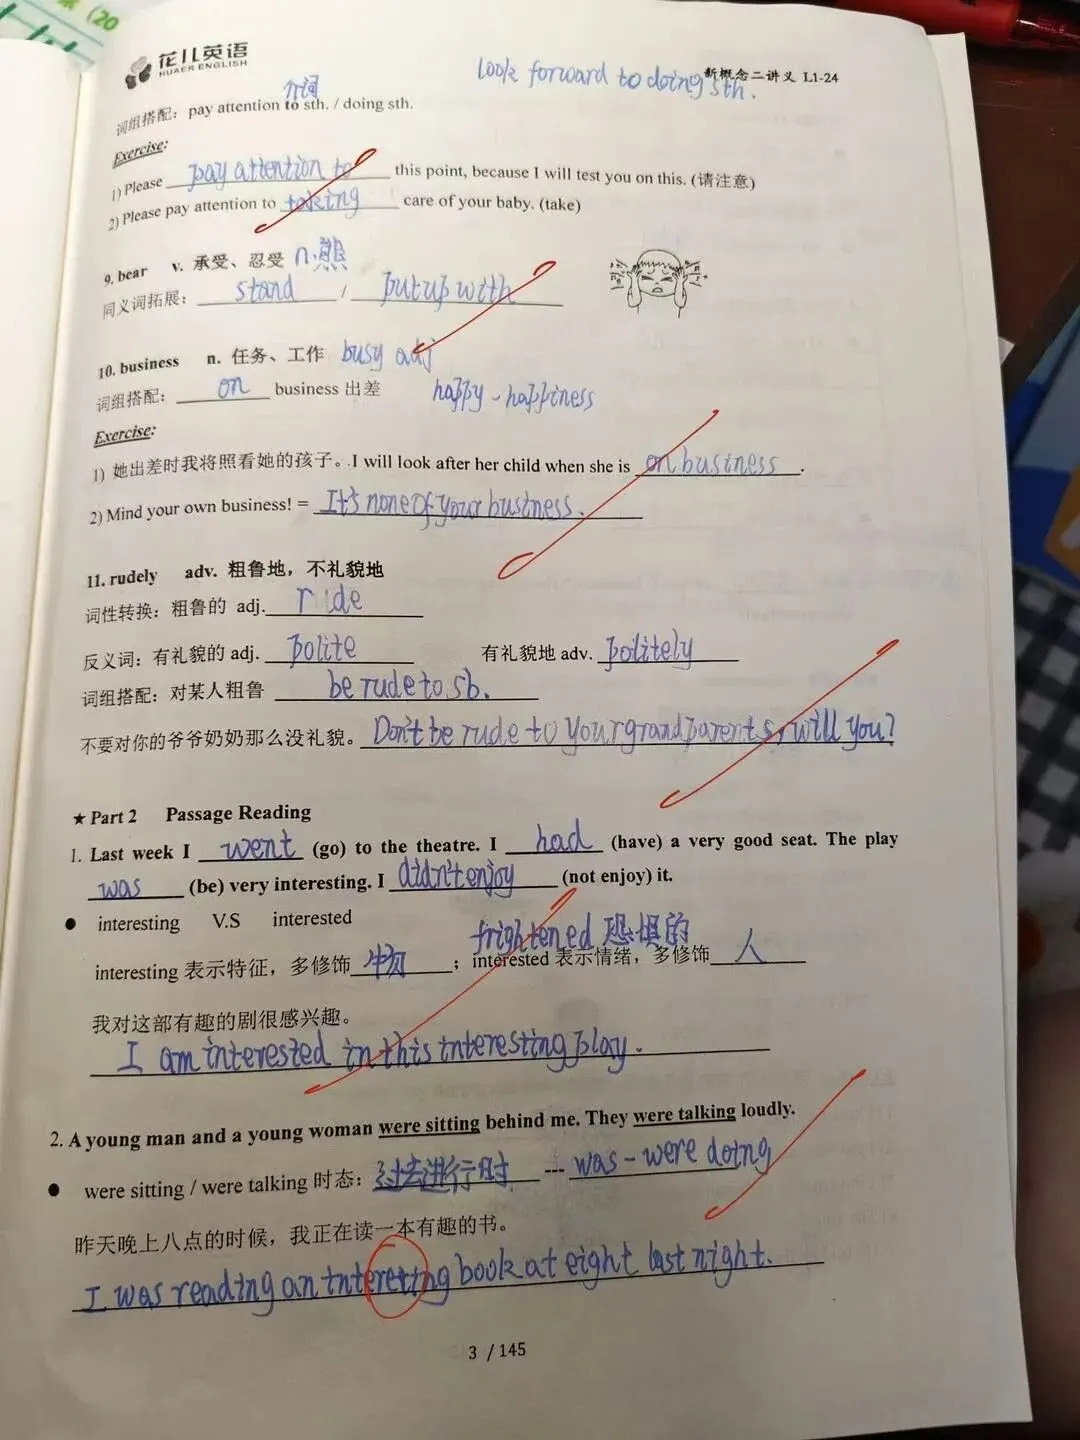 (20
花儿英语
HUAER ENGLISH
look forward to doing sth.
新概念二讲义 L1-24
介词
词组搭配: pay attention to sth. / doing sth.
Exercise:
1) Please pay attention to this point, because I will test you on this. (请注意)
2) Please pay attention to taking care of your baby. (take)
9. bear v. 承受、忍受 n.熊
同义词拓展: stand / put up with
10. business n. 任务、工作 busy adj
词组搭配: on business 出差 happy - happiness
Exercise:
1) 她出差时我将照看她的孩子。I will look after her child when she is on business.
2) Mind your own business! = It's none of your business.
11. rudely adv. 粗鲁地，不礼貌地
词性转换: 粗鲁的 adj. rude
反义词: 有礼貌的 adj. polite 有礼貌地 adv. politely
词组搭配: 对某人粗鲁 be rude to sb.
不要对你的爷爷奶奶那么没礼貌。 Don't be rude to your grandparents, will you?
★ Part 2 Passage Reading
1. Last week I went (go) to the theatre. I had (have) a very good seat. The play
was (be) very interesting. I didn't enjoy (not enjoy) it.
● interesting V.S interested
frightened 恐惧的
interesting 表示特征，多修饰 物 ；interested 表示情绪，多修饰 人
我对这部有趣的剧很感兴趣。
I am interested in this interesting play.
2. A young man and a young woman were sitting behind me. They were talking loudly.
● were sitting / were talking 时态: 过去进行时 --- was - were doing
昨天晚上八点的时候，我正在读一本有趣的书。
I was reading an intereting book at eight last night.
3 / 145